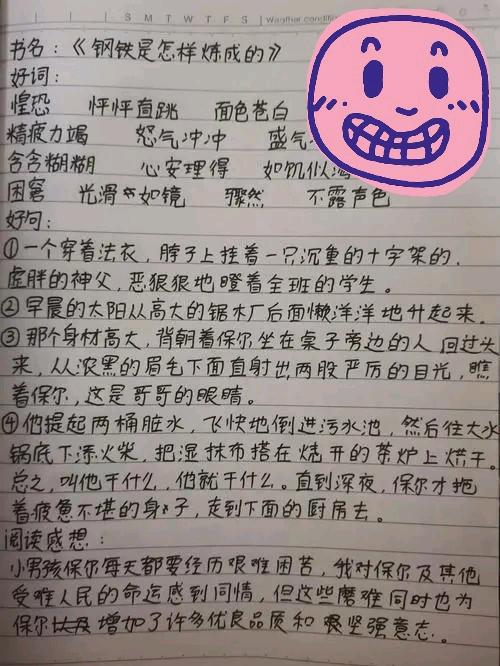 S M T W T F S Weather condition
书名：《钢铁是怎样炼成的》
好词：
惶恐 怦怦直跳 面色苍白
精疲力竭 怒气冲冲 盛气
含含糊糊 心安理得 如饥似渴
困窘 光滑如镜 骤然 不露声色
好句：
①一个穿着法衣，脖子上挂着一只沉重的十字架的，
虚胖的神父，恶狠狠地瞪着全班的学生。
②早晨的太阳从高大的锯木厂后面懒洋洋地升起来。
③那个身材高大，背朝着保尔坐在桌子旁边的人 回过头
来，从浓黑的眉毛下面直射出两股严厉的目光，瞧
着保尔，这是哥哥的眼睛。
④他提起两桶脏水，飞快地倒进污水池，然后往大水
锅底下添火柴，把湿抹布搭在烧开的茶炉上烘干。
总之，叫他干什么，他就干什么。直到深夜，保尔才拖
着疲惫不堪的身子，走到下面的厨房去。
阅读感想：
小男孩保尔每天都要经历艰难困苦，我对保尔及其他
受难人民的命运感到同情，但这些磨难同时也为
保尔增加了许多优良品质和坚强意志。